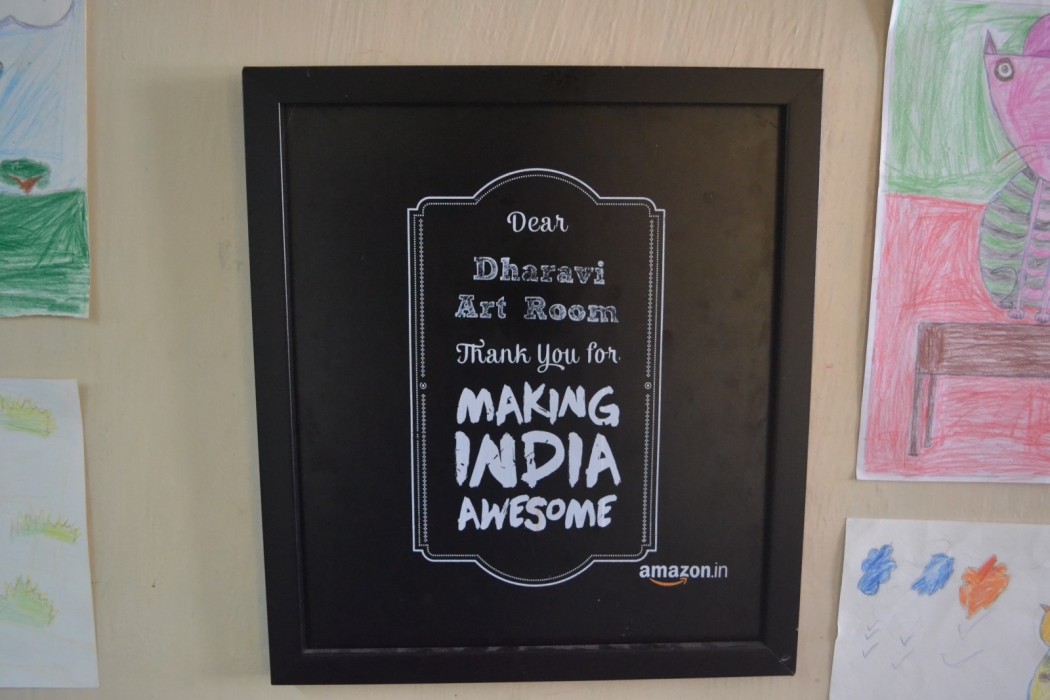 Dear
Dharavi
Art Room
Thank You for
MAKING
INDIA
AWESOME
amazon.in